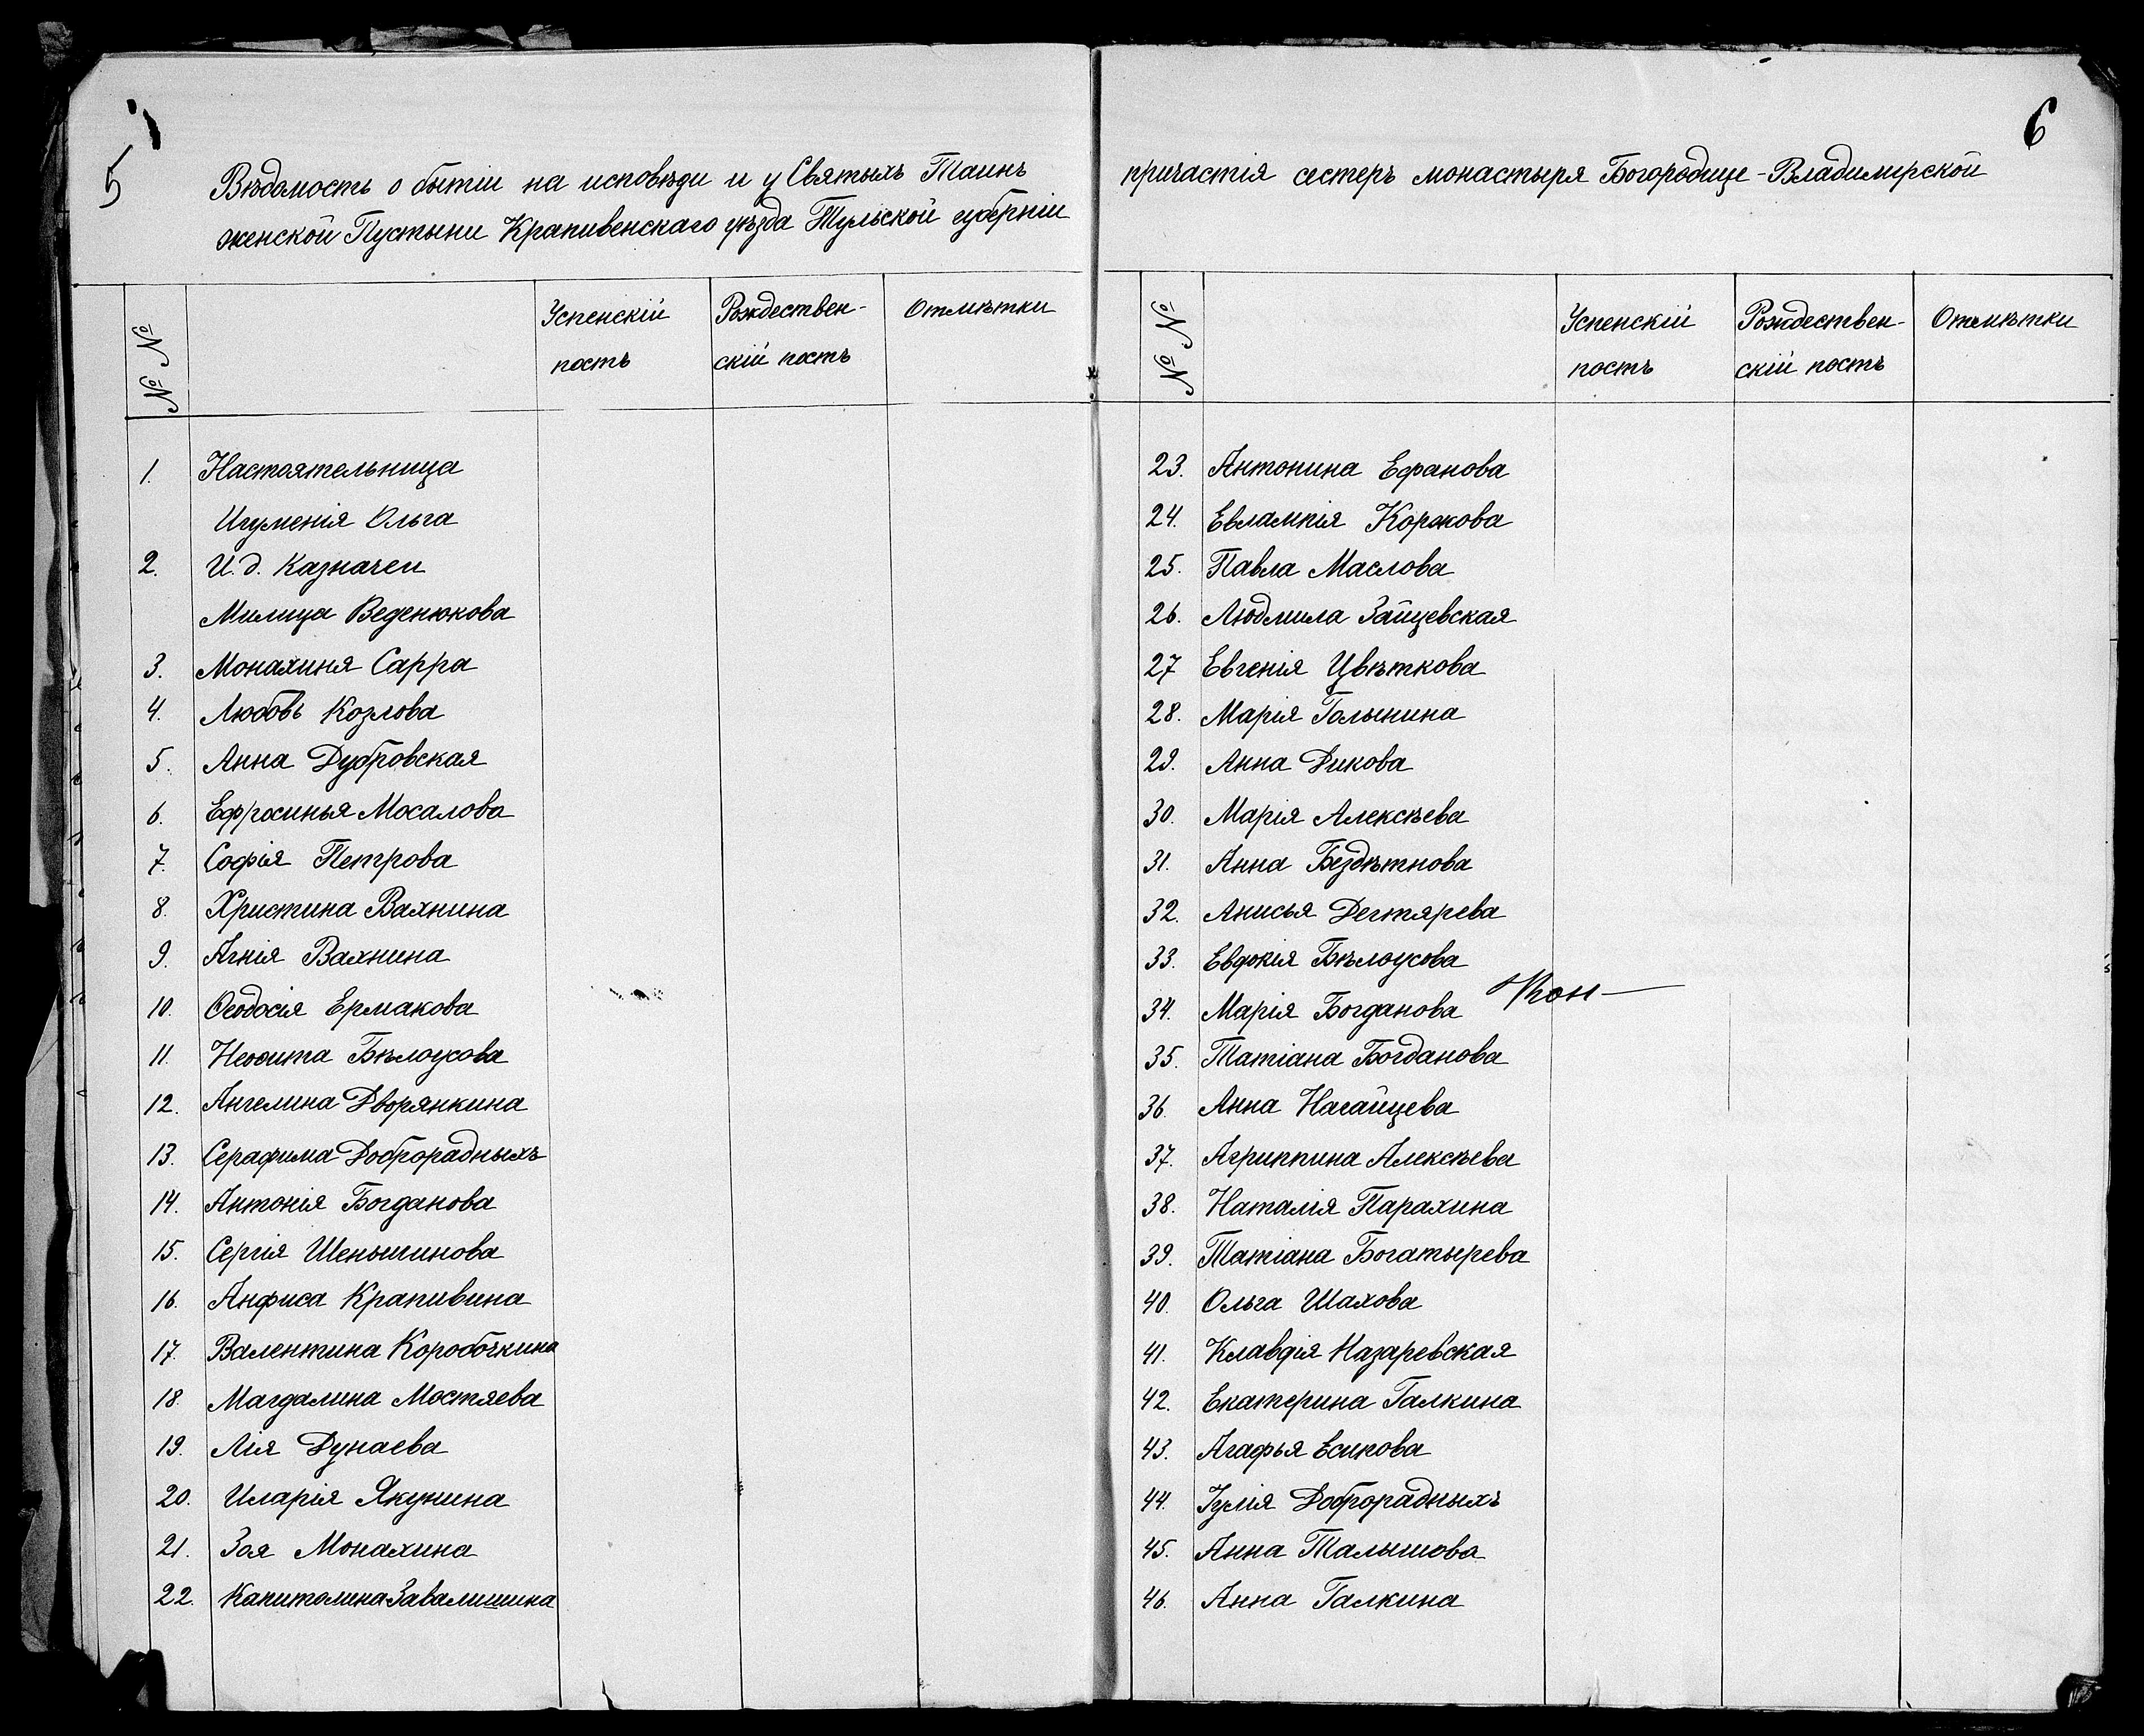 5
Вѣдомость о бытіи на исповѣди и у Святыхъ Таинъ
женской Пустыни Крапивенскаго уѣзда Тульской губерніи
№ №
Успенскій постъ
Рождествен-
скій постъ
Отмѣтки
1. Настоятельница
Игуменія Ольга
2. И. д. Казначеи
Милица Веденюкова
3. Монахиня Сарра
4. Любовь Козлова
5. Анна Дубровская
6. Ефросинья Мосалова
7. Софія Петрова
8. Христина Вахнина
9. Агнія Вахнина
10. Ѳеодосія Ермакова
11. Неонита Бѣлоусова
12. Ангелина Дворянкина
13. Серафима Доброрадныхъ
14. Антонія Богданова
15. Сергія Шеньшинова
16. Анфиса Крапивина
17. Валентина Коробочкина
18. Магдалина Мостяева
19. Лія Дунаева
20. Иларія Якунина
21. Зоя Монахина
22. Капитолина Завалишина
6
причастія сестеръ монастыря Богородице-Владимирской
№ №
Успенскій
постъ
Рождествен-
скій постъ
Отмѣтки
23. Антонина Ефанова
24. Евлампія Коржова
25. Павла Маслова
26. Людмила Зайцевская
27 Евгенія Цвѣткова
28. Марія Голынина
29. Анна Дикова
30. Марія Алексѣева
31. Анна Бездѣтнова
32. Анисья Дегтярева
33. Евдокія Бѣлоусова
34. Марія Богданова
35. Татіана Богданова
36. Анна Насайцева
37. Агриппина Алексѣева
38. Наталія Парахина
39. Татіана Богатырева
40. Ольга Шахова
41. Клавдія Назаревская
42. Екатерина Галкина
43. Агафья Есипова
44. Іулія Доброрадныхъ
45. Анна Талышова
46. Анна Галкина